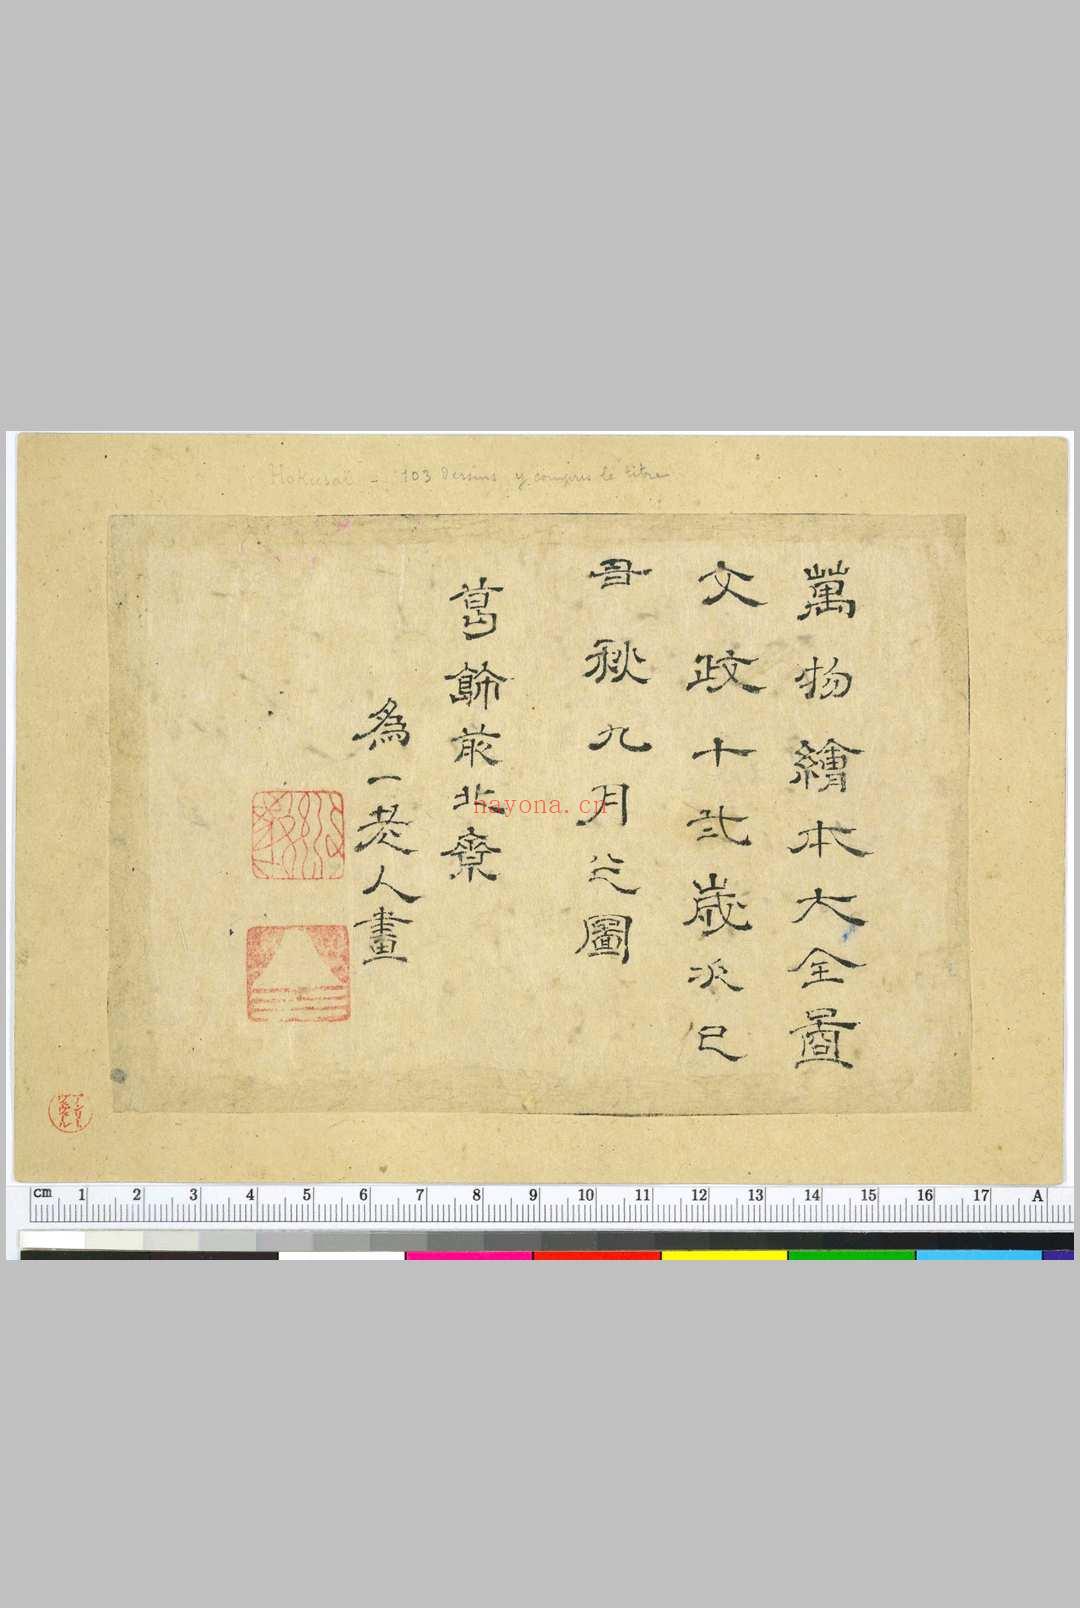 Hokusaï - 103 dessins y compris le titre
萬物繪本大全圖
文政十弍歳次己
丑秋九月之圖
葛飾前北齋
為一老人畫
nayona.cn
cm 1 2 3 4 5 6 7 8 9 10 11 12 13 14 15 16 17 A